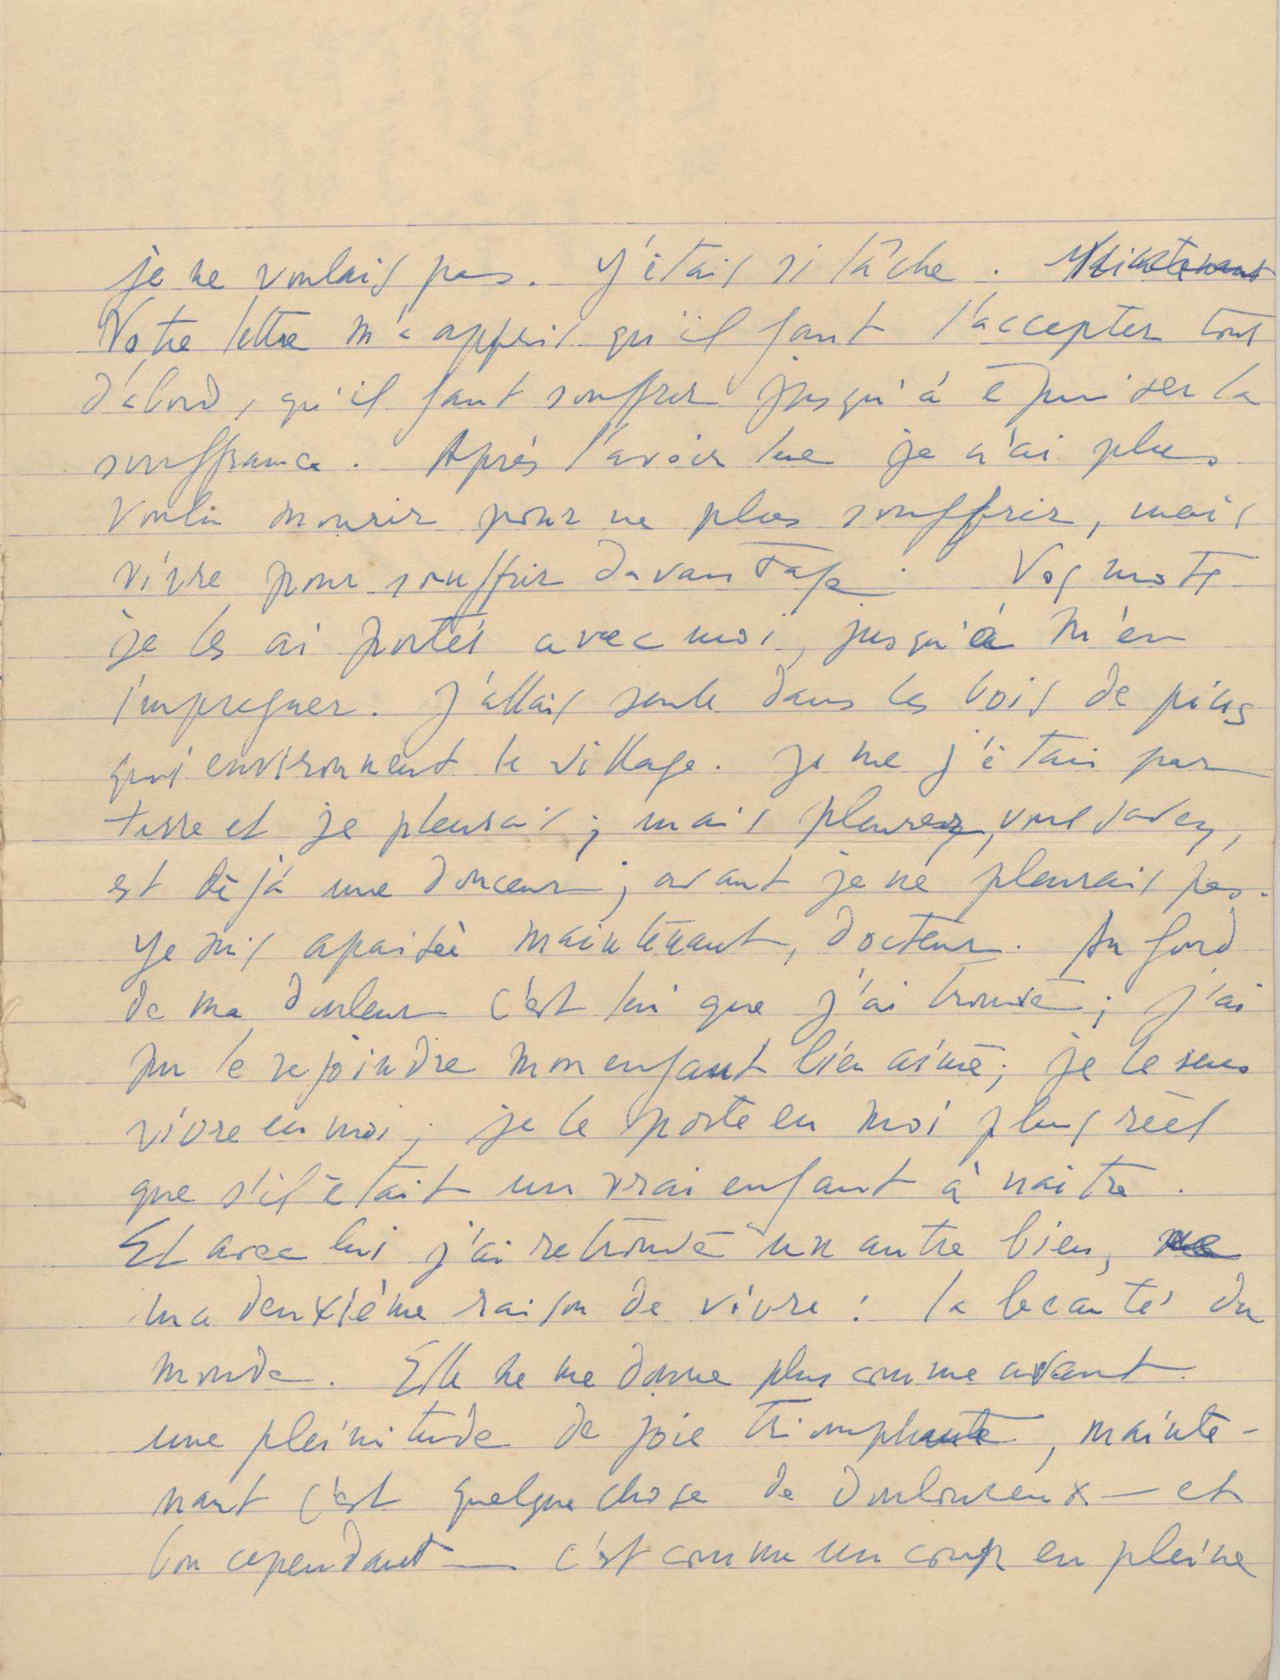 je ne voulais pas. J'étais si lâche. Maintenant
Votre lettre m'a appris qu'il faut l'accepter tout
d'abord, qu'il faut souffrir jusqu'à épuiser la
souffrance. Après l'avoir lue je n'ai plus
voulu mourir pour ne plus souffrir, mais
vivre pour souffrir davantage. Vos mots
je les ai portés avec moi, jusqu'à m'en
impregner. J'allais seule dans les bois de pins
qui environnent le village. Je me j'étais par
terre et je pleurais; mais pleurer, vous savez,
est déjà une douceur; avant je ne pleurais pas.
Je suis apaisée maintenant, docteur. Au fond
de ma douleur c'est lui que j'ai trouvé; j'ai
pu le rejoindre mon enfant bien aimé; je le sens
vivre en moi; je le porte en moi plus réel
que s'il était un vrai enfant à naitre.
Et avec lui j'ai retrouvé un autre bien,
ma deuxième raison de vivre: la beauté du
monde. Elle ne me donne plus comme avant
une pleinitude de joie triomphante, mainte-
nant c'est quelque chose de douloureux — et
bon cependant — c'est comme un coup en pleine